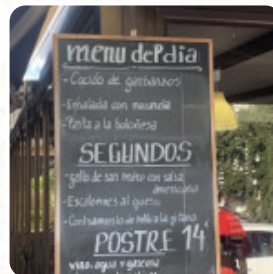 menu del dia
- Cocido de garbanzos
- Ensalada con mozarela
- Pasta a la boloñesa
SEGUNDOS
- gallo de san Pedro con salsa
americana
- Escalopines al queso
- a la gitana
POSTRE 14
vino, agua y gaseosa